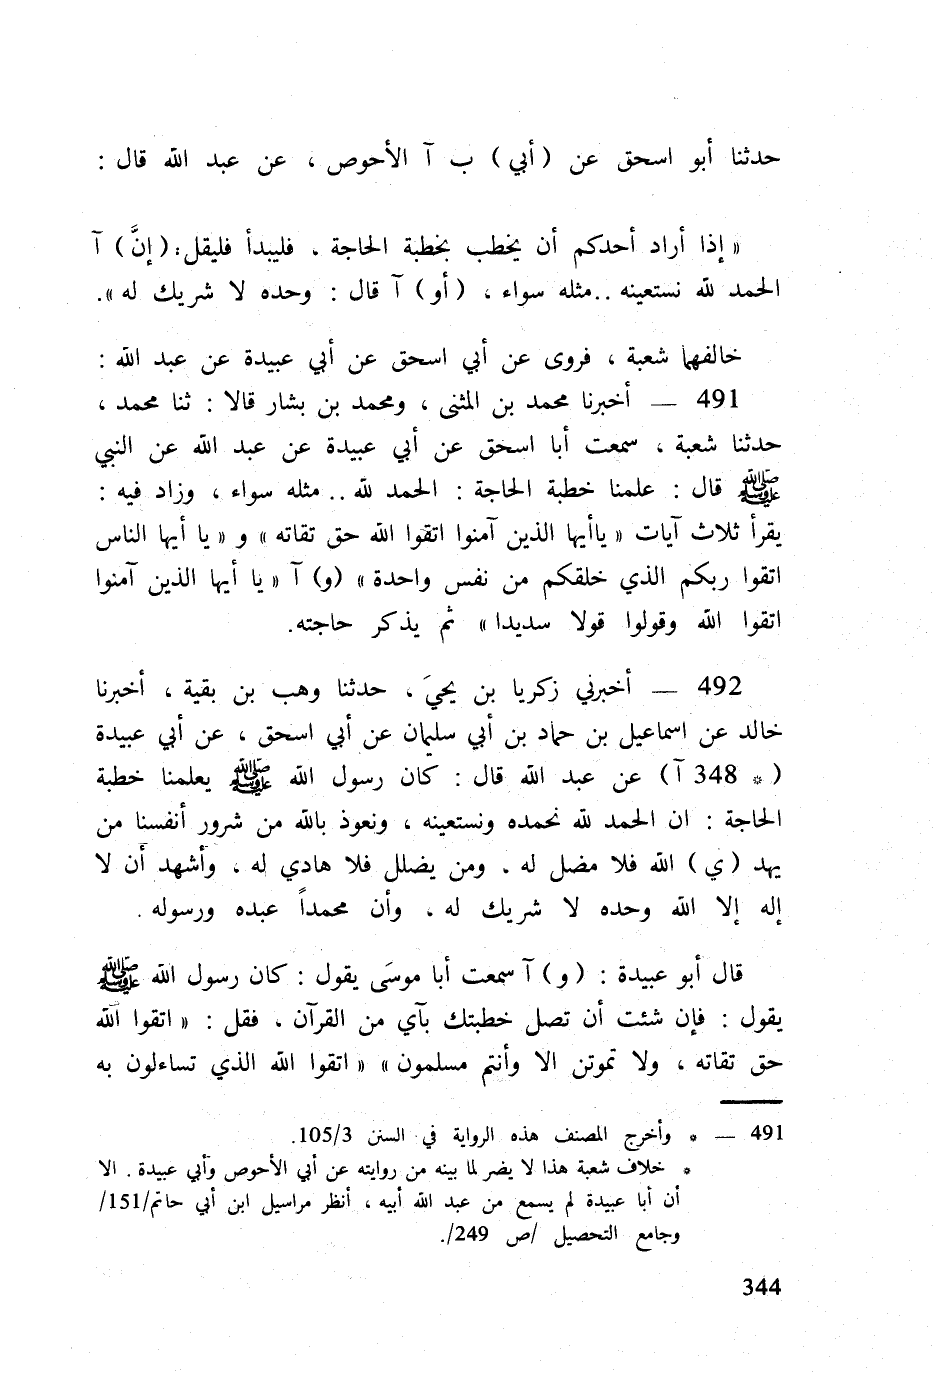 حدثنا أبو اسحق عن (أبي) ب آ الأحوص ، عن عبد الله قال :
« إذا أراد أحدكم أن يخطب بخطبة الحاجة . فليبدأ فليقل : (إنَّ) آ
الحمد لله نستعينه .. مثله سواء ، (أو) آ قال : وحده لا شريك له ».
خالفهما شعبة ، فروى عن أبي اسحق عن أبي عبيدة عن عبد الله :
491 — أخبرنا محمد بن المثنى ، ومحمد بن بشار قالا : ثنا محمد ،
حدثنا شعبة ، سمعت أبا اسحق عن أبي عبيدة عن عبد الله عن النبي
ﷺ قال : علمنا خطبة الحاجة : الحمد لله .. مثله سواء ، وزاد فيه :
يقرأ ثلاث آيات « ياأيها الذين آمنوا اتقوا الله حق تقاته » و « يا أيها الناس
اتقوا ربكم الذي خلقكم من نفس واحدة » (و) آ « يا أيها الذين آمنوا
اتقوا الله وقولوا قولا سديدا » ثم يذكر حاجته.
492 — أخبرني زكريا بن يحيَ ، حدثنا وهب بن بقية ، أخبرنا
خالد عن اسماعيل بن حماد بن أبي سليمان عن أبي اسحق ، عن أبي عبيدة
( * 348 آ ) عن عبد الله قال : كان رسول الله ﷺ يعلمنا خطبة
الحاجة : ان الحمد لله نحمده ونستعينه ، ونعوذ بالله من شرور أنفسنا من
يهد (ي) الله فلا مضل له . ومن يضلل فلا هادي له ، وأشهد أن لا
إله إلا الله وحده لا شريك له ، وأن محمداً عبده ورسوله .
قال أبو عبيدة : (و) آ سمعت أبا موسَى يقول : كان رسول الله ﷺ
يقول : فإن شئت أن تصل خطبتك بآي من القرآن ، فقل : « اتقوا الله
حق تقاته ، ولا تموتن الا وأنتم مسلمون » « اتقوا الله الذي تساءلون به
491 — * وأخرج المصنف هذه الرواية في السنن 105/3.
* خلاف شعبة هذا لا يضر لما بينه من روايته عن أبي الأحوص وأبي عبيدة . الا
أن أبا عبيدة لم يسمع من عبد الله أبيه ، أنظر مراسيل ابن أبي حاتم/151/
وجامع التحصيل /ص 249/.
344